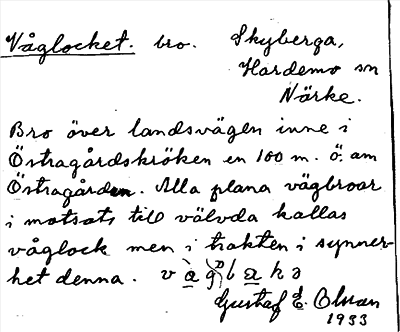 Våglocket. bro. Skyberga,
Hardemo sn
Närke.
Bro över landsvägen inne i
Östragårdskröken en 100 m. ö. om
Östragården. Alla plana vägbroar
i motsats till välvda kallas
våglock men i trakten i synner-
het denna.
Gustaf E. Olsson
1933